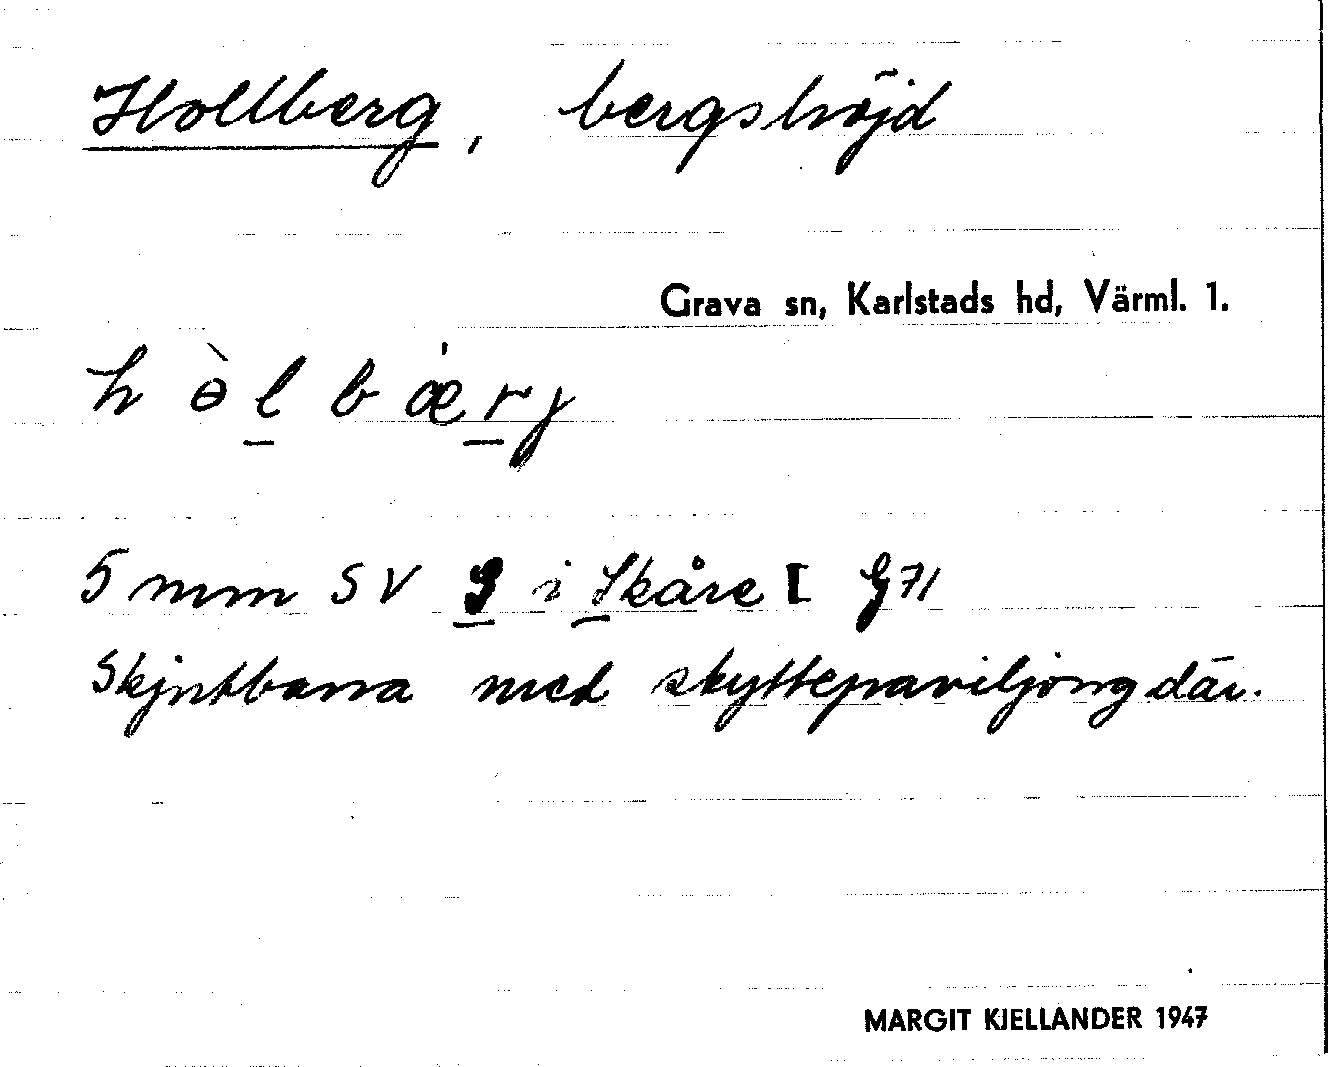 Hollberg, bergshöjd
Grava sn, Karlstads hd, Värml. 1.
h ɵ̀ l b æ̍ r j
5 mm SV S i Skåre [ G71
Skjutbana med skyttepaviljong där.
MARGIT KJELLANDER 1947